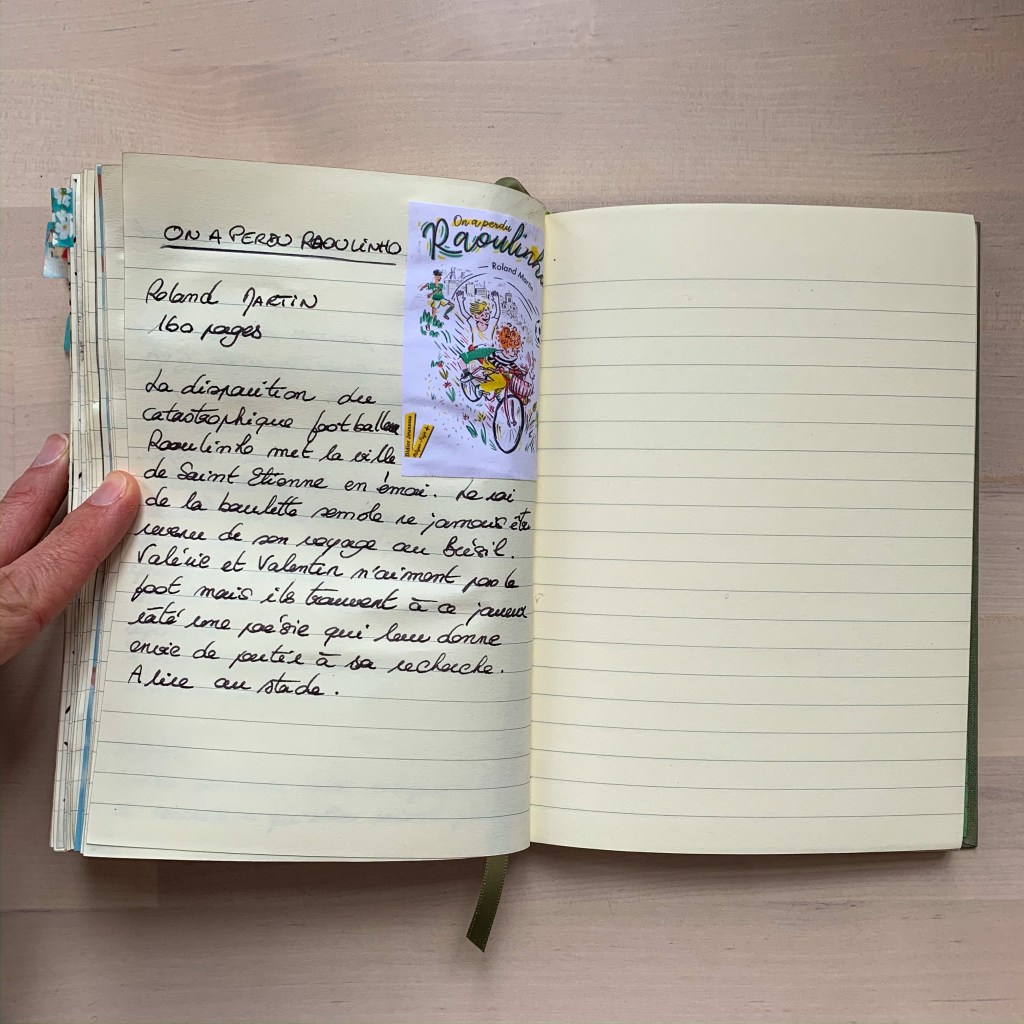 ON A PERDU RAOULINHO
Roland MARTIN
160 pages
La disparition du
catastrophique footballeur
Raoulinho met la ville
de Saint Etienne en émoi. Le roi
de la boulette semble ne jamais être
revenu de son voyage au Brésil.
Valérie et Valentin n'aiment pas le
foot mais ils trouvent à ce joueur
raté une poésie qui leur donne
envie de partir à sa recherche.
A lire au stade.
On a perdu
Raoulinho
Roland Martin
Didier Jeunesse